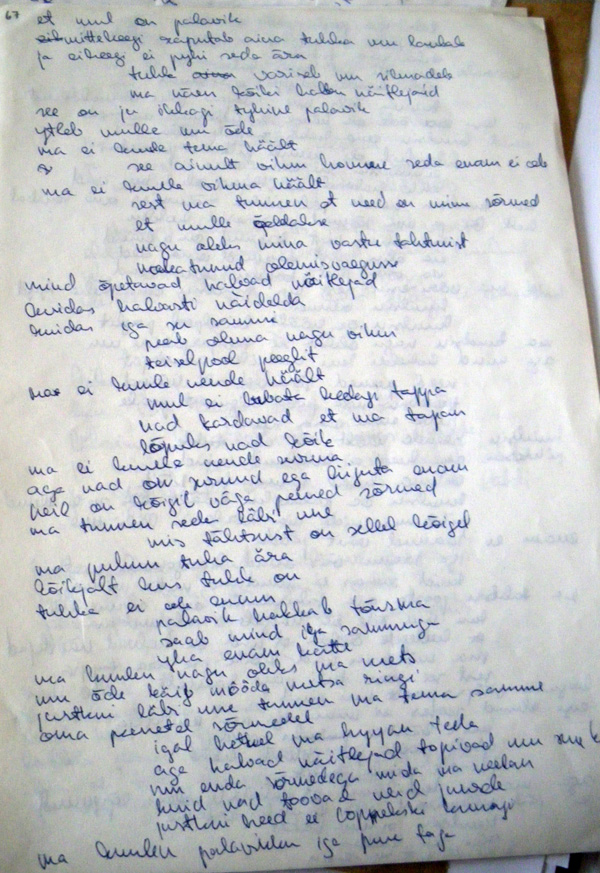 67
et mul on palavik
mittekeegi raputab aina tuhka mu kaudab
ja eikeegi ei pühi seda ära
tuhk variseb mu silmadele
ma näen kõiki halbu näitlejaid
see on ju ikkagi tühine palavik
ütleb mulle mu õde
ma ei kuule tema häält
see ainult vihm homme seda enam ei ole
ma ei kuule vihma häält
sest ma tunnen et need on minu sõrmed
et mulle öeldakse
nagu oleks mina vastu tahtmist
hakatanud olemisvaeguse
mind õpetavad halvad näitlejad
kuidas halvasti näidelda
kuidas iga su samm
peab olema nagu vihm
teiselpool peeglit
ma ei kuule nende häält
mul ei lubata kedagi tappa
nad kardavad et ma tapan
lõpuks nad kõik
ma ei kuule nende surma
aga nad on surnud ega liiguta enam
neil on kõigil väga peened sõrmed
ma tunnen seda läbi une
mis tähtsust on sellel kõigel
ma puhun tuha ära
kõikjalt kus tuhk on
tuhka ei ole enam
palavik hakkab tõusma
saab mind iga sammuga
üha enam kätte
ma kuulen nagu oleks ma mets
mu õde käib mööda metsa ringi
justkui läbi une tunnen ma tema samme
oma peenetel sõrmedel
igal hetkel ma hüüan teda
aga halvad näitlejad topivad mu suu
mu enda sõrmedega mida ma neelan
kuid nad toovad neid juurde
justkui need ei lõppekski kunagi
ma kuulen palavikku iga puu taga